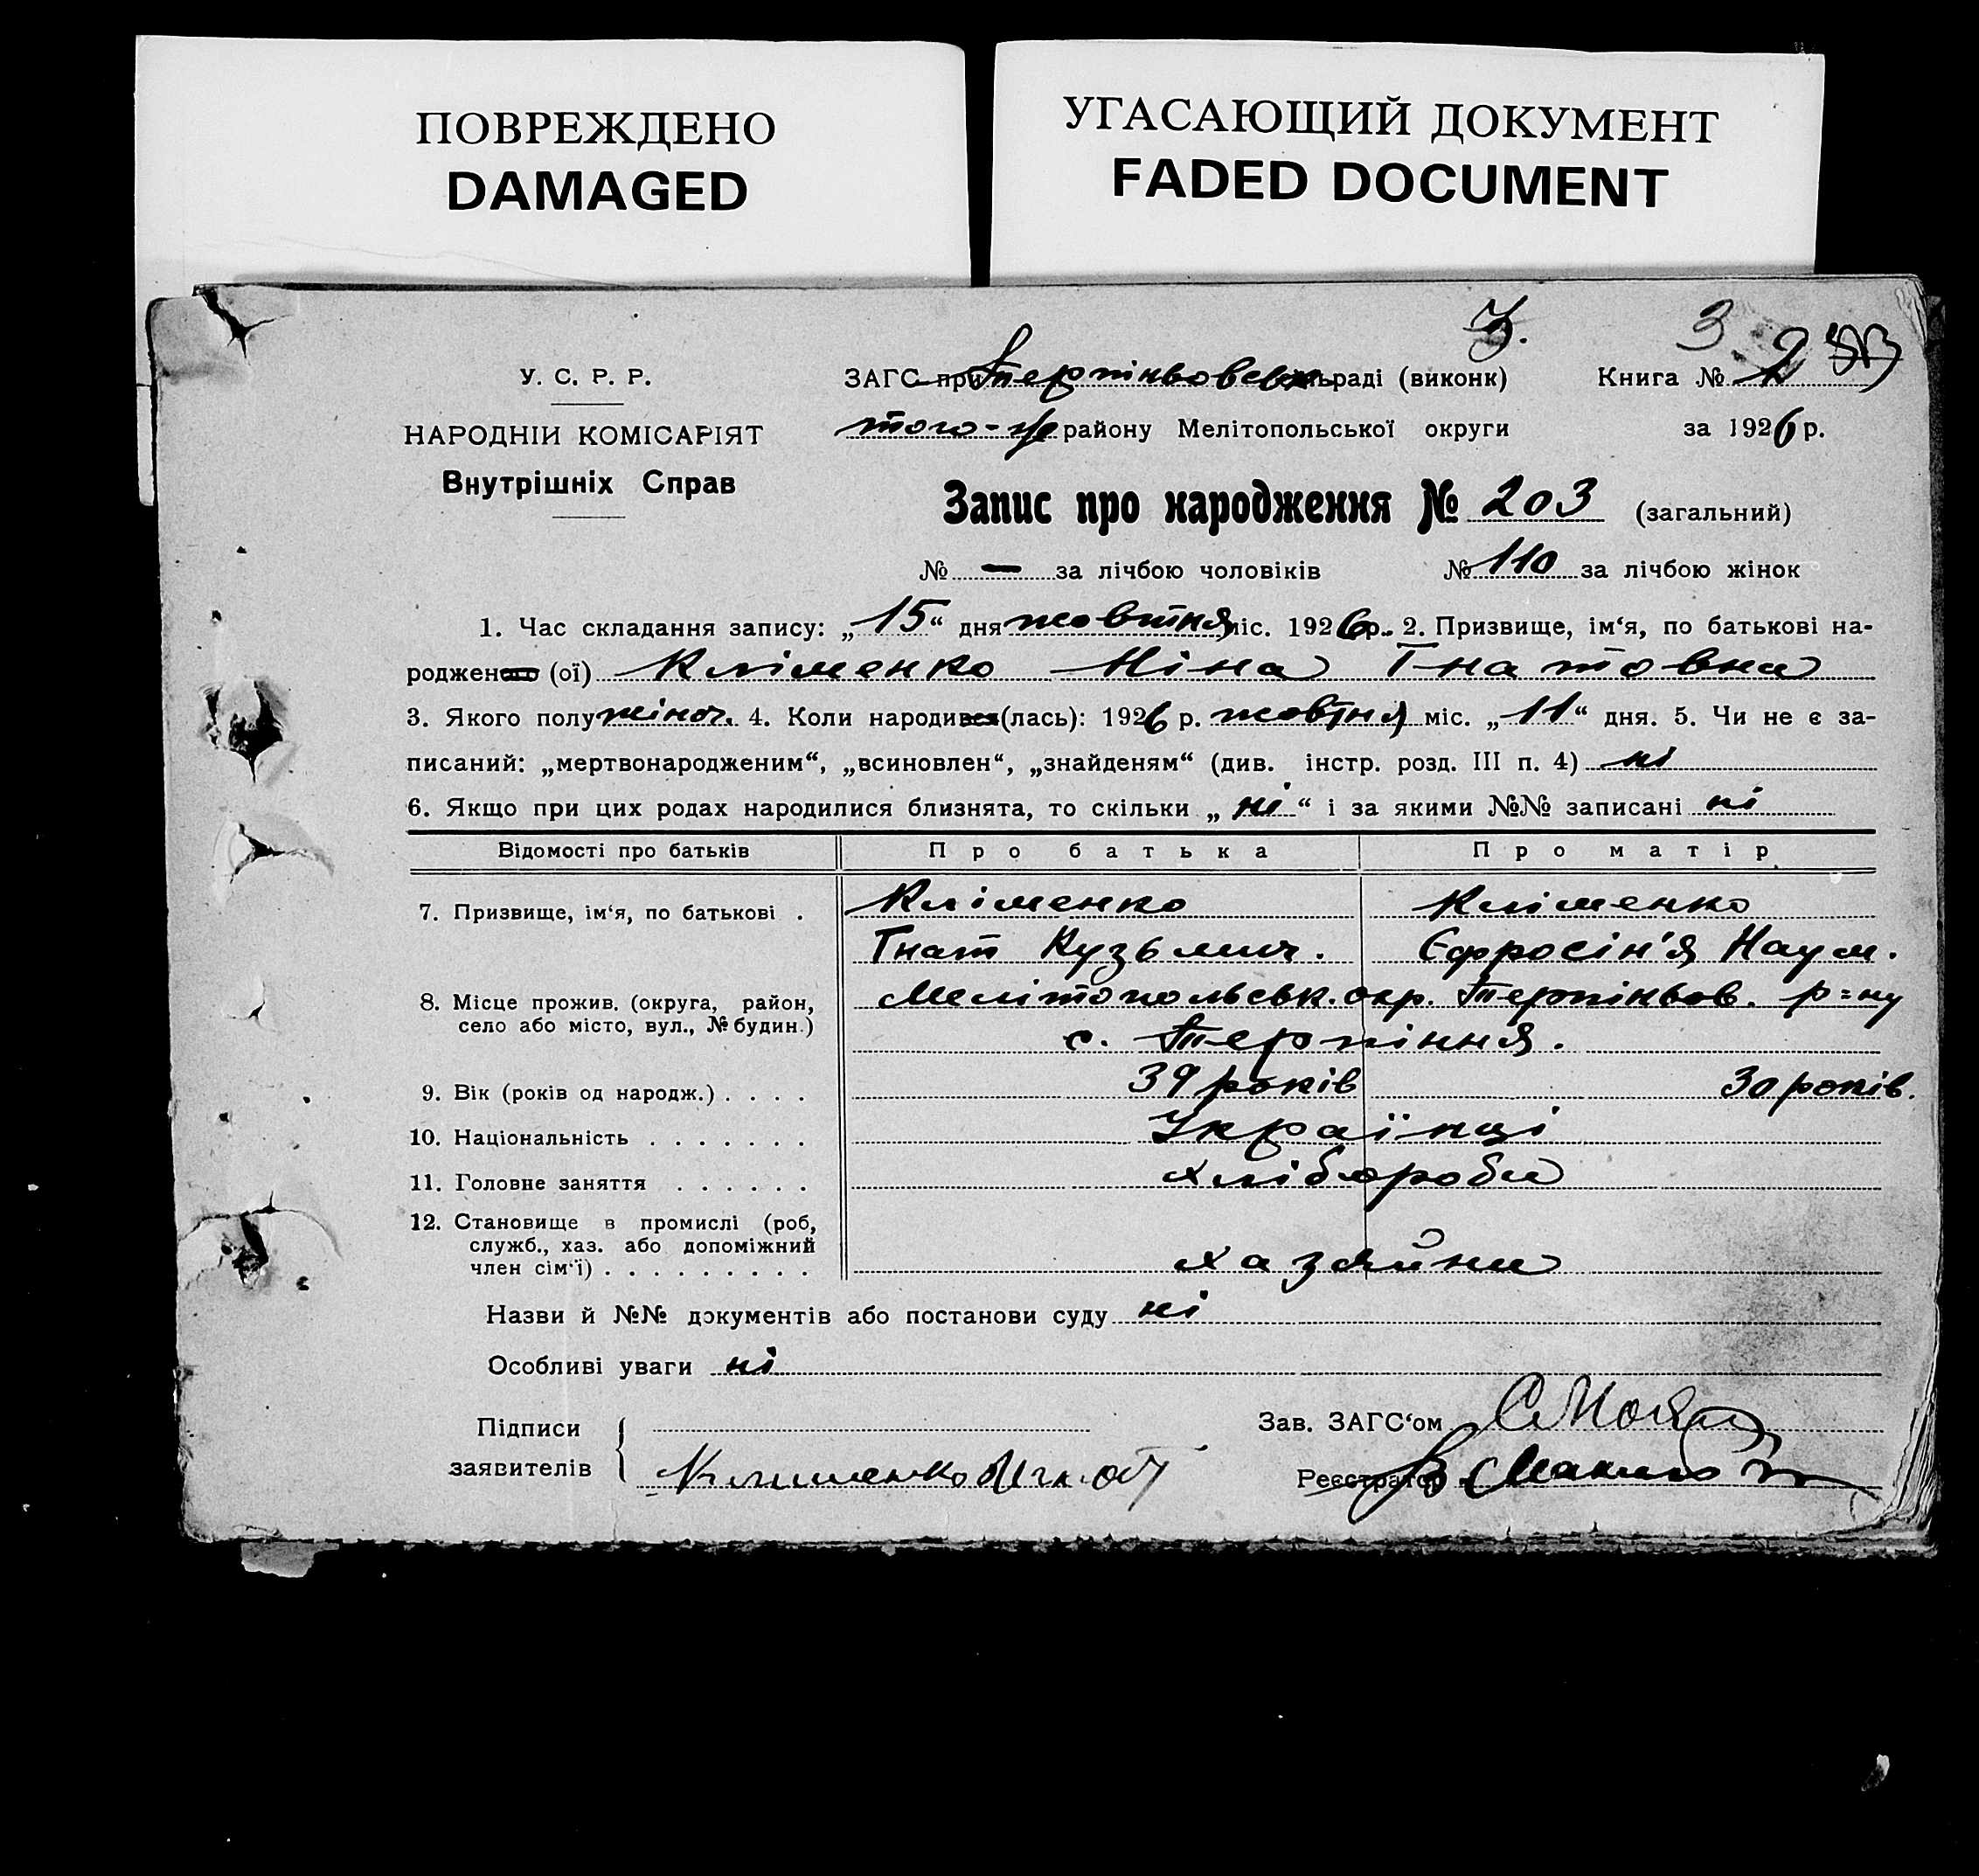 ПОВРЕЖДЕНО
DAMAGED
УГАСАЮЩИЙ ДОКУМЕНТ
FADED DOCUMENT
3.
3
У. С. Р. Р.
ЗАГС при Терпіньовськ раді (виконк)
Книга № 2
НАРОДНІЙ КОМІСАРІЯТ
того-ж району Мелітопольської округи
за 1926 р.
Внутрішніх Справ
Запис про народження № 203 (загальний)
№ — за лічбою чоловіків № 110 за лічбою жінок
1. Час складання запису: „15“ дня жовтня міс. 1926 р. 2. Призвище, ім‘я, по батькові на-
роджен (ої) Кліменко Ніна Гнатовна
3. Якого полу жіноч. 4. Коли народився (лась): 1926 р. жовтня міс. „11“ дня. 5. Чи не є за-
писаний: „мертвонародженим“, „всиновлен“, „знайденям“ (див. інстр. розд. III п. 4) ні
6. Якщо при цих родах народилися близнята, то скільки „ні“ і за якими №№ записані ні
Відомості про батьків Про батька Про матір
7. Призвище, ім‘я, по батькові . Кліменко Кліменко
Гнат Кузьмич. Єфросін'я Наум.
8. Місце прожив. (округа, район, Мелітопольськ. окр. Терпіньов. р=ну
село або місто, вул., № будин.) с. Терпіння.
9. Вік (років од народж.) . . . . 39 років 30 років.
10. Національність . . . . . . . Українці
11. Головне заняття . . . . . . хлібороби
12. Становище в промислі (роб,
служб., хаз. або допоміжний
член сім‘ї) . . . . . . . . . хазяйни
Назви й №№ документів або постанови суду ні
Особливі уваги ні
Підписи
заявителів Клименко Игнат
Зав. ЗАГС‘ом
Реєстратор